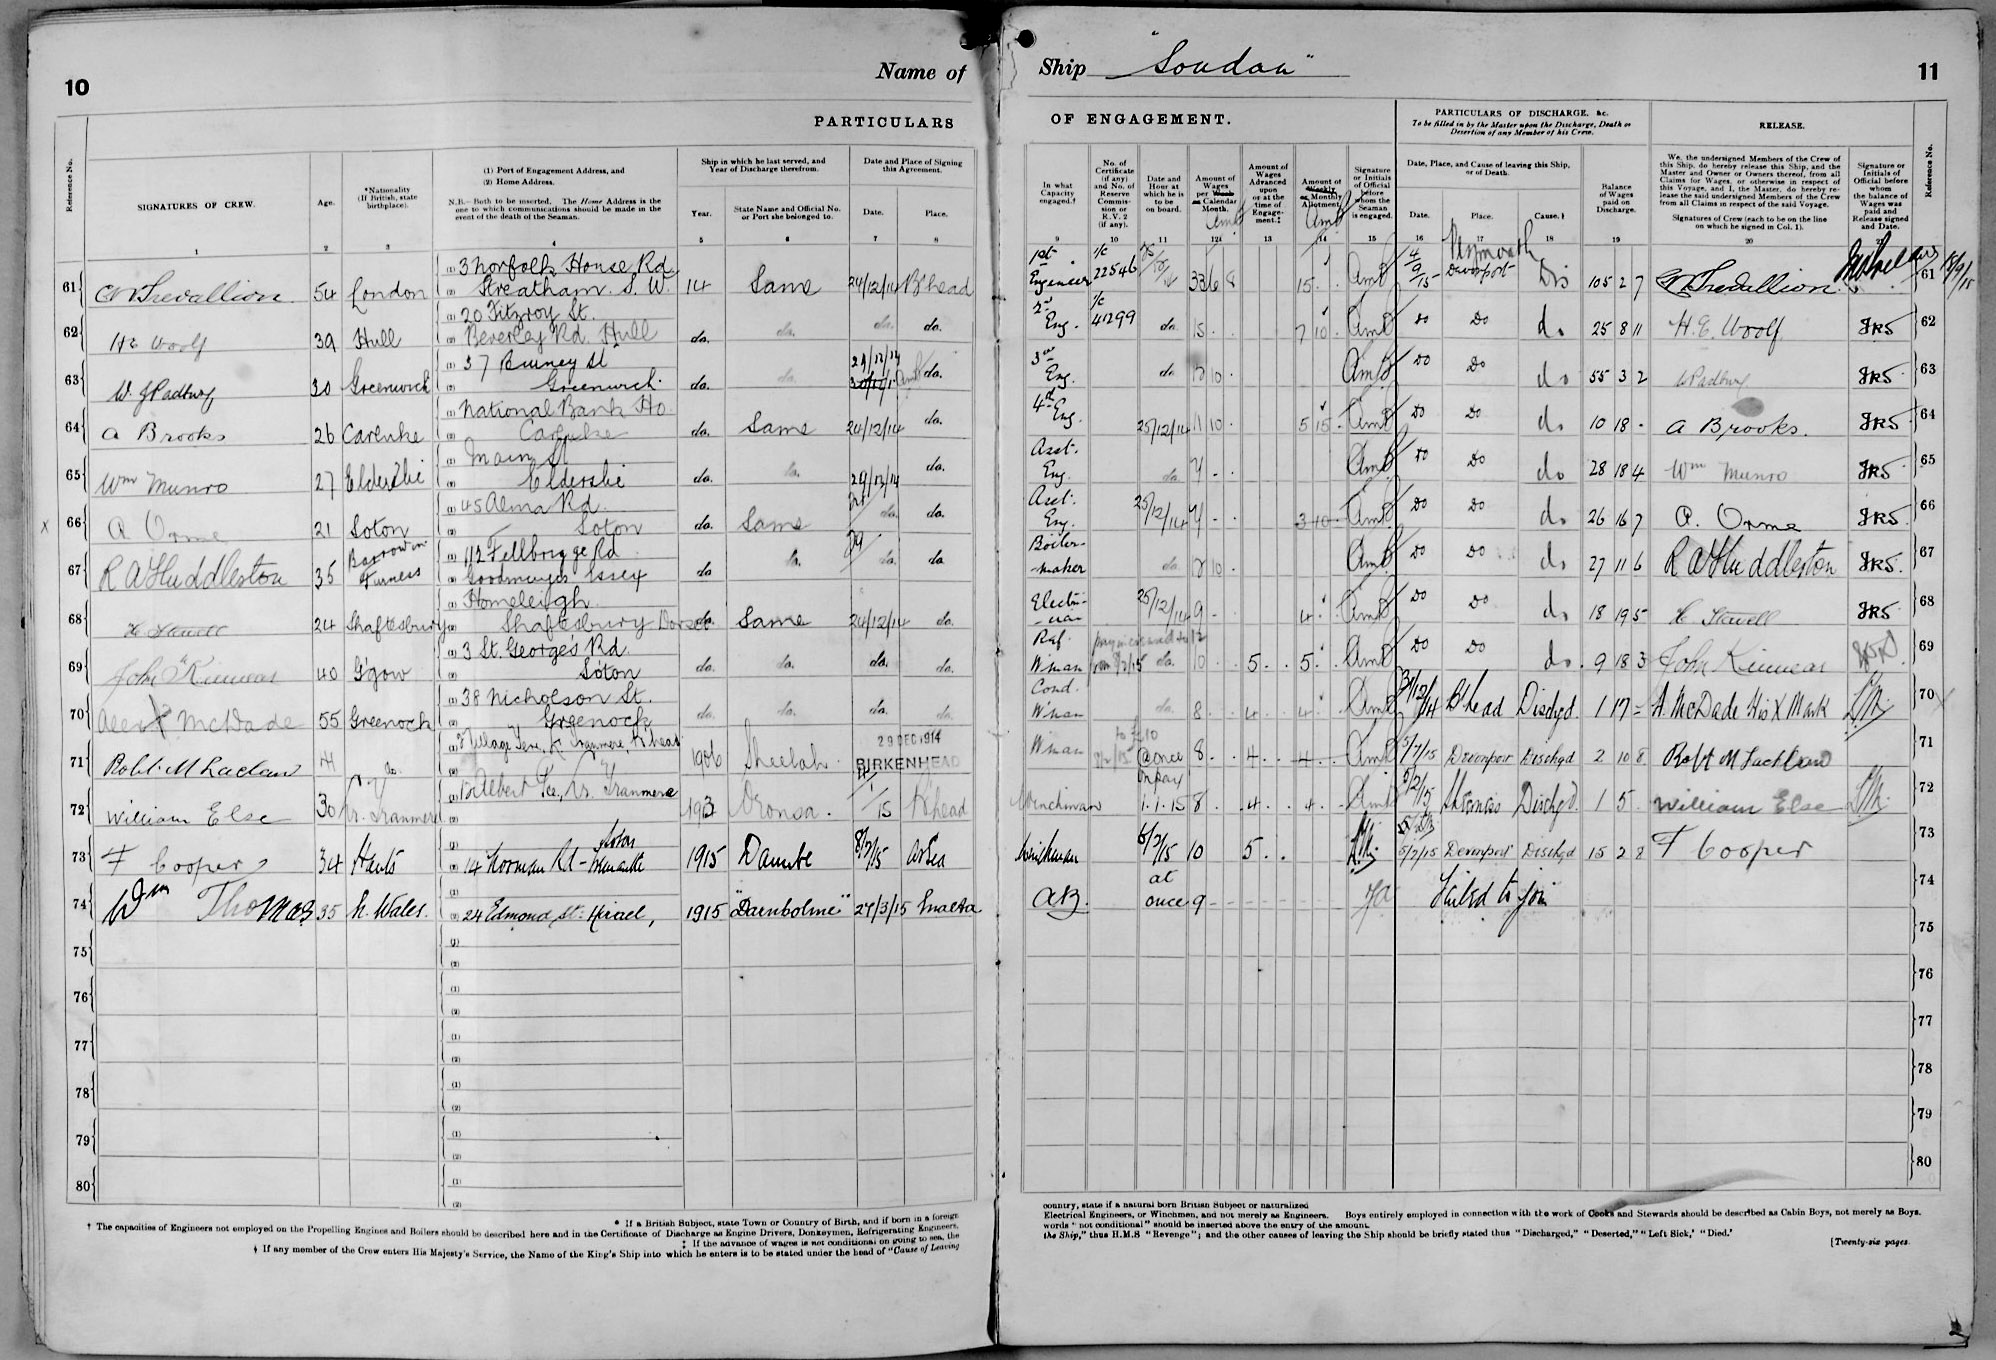 10
Name of
Ship "Soudan"
11
PARTICULARS
OF ENGAGEMENT.
PARTICULARS OF DISCHARGE, &c.
To be filled in by the Master upon the Discharge, Death or Desertion of any Member of his Crew.
RELEASE.
Reference No.
SIGNATURES OF CREW.
Age.
*Nationality (If British, state birthplace).
(1) Port of Engagement Address, and
(2) Home Address.
N.B.—Both to be inserted. The Home Address is the one to which communications should be made in the event of the death of the Seaman.
Ship in which he last served, and Year of Discharge therefrom.
Year.
State Name and Official No. or Port she belonged to.
Date and Place of Signing this Agreement.
Date.
Place.
In what Capacity engaged.†
No. of Certificate (if any) and No. of Reserve Commission or R.V. 2 (if any).
Date and Hour at which he is to be on board.
Amount of Wages per Week or Calendar Month.
Amount of Wages Advanced upon or at the time of Engagement.‡
Amount of Weekly or Monthly Allotment.
Signature or Initials of Official before whom the Seaman is engaged.
Date, Place, and Cause of leaving this Ship, or of Death.
Date.
Place.
Cause.
Balance of Wages paid on Discharge.
We, the undersigned Members of the Crew of this Ship, do hereby release this Ship, and the Master and Owner or Owners thereof, from all Claims for Wages, or otherwise in respect of this Voyage, and I, the Master, do hereby release the said undersigned Members of the Crew from all Claims in respect of the said Voyage.
Signatures of Crew (each to be on the line on which he signed in Col. 1).
Signature or Initials of Official before whom the balance of Wages was paid and Release signed and Date.
Reference No.
1 2 3 4 5 6 7 8 9 10 11 12 13 14 15 16 17 18 19 20 21
61 Trevallion 54 London 3 Norfolk House Rd Streatham S.W. 14 Same 24/12/14 B'head 1st Engineer 22546 33 6 8 15 AmB 4/9/15 Plymouth Devonport Dis 105 2 7 Trevallion 61
62 H E Woolf 39 Hull 20 Fitzroy St. Beverley Rd Hull do. do. do. do. 2nd Eng. 41299 do 15 7 10 AmB Do Do do 25 8 11 H. E. Woolf JRS 62
63 W. J Padbury 30 Greenwich 37 Burney St Greenwich do. do. 29/12/14 do. 3rd Eng. do 12 10 AmB Do Do do 55 3 2 W Padbury JRS 63
64 A Brooks 26 Carluke National Bank Ho. Carluke do. Same 24/12/14 do. 4th Eng. 25/12/14 11 10 5 15 AmB Do Do do 10 18 - A Brooks. JRS 64
65 Wm Munro 27 Elderslie Main St Elderslie do. do. 29/12/14 do. Asst. Eng. do. 9 - AmB Do Do do 28 18 4 Wm Munro JRS 65
x 66 A Orme 21 Soton 45 Alma Rd. Soton do. Same do. do. Asst. Eng. 25/12/14 9 - 3 10 AmB Do Do do 26 16 7 A. Orme JRS 66
67 R A Huddleston 35 Barrow in Furness 112 Fellbrigge Rd Goodmayes Essex do do. 29/ do. do Boiler-maker do. 12 10 AmB Do Do do 27 11 6 R A Huddleston JRS. 67
68 24 Shaftesbury Homeleigh Shaftesbury Dorset do. Same 24/12/14 do. Electri-cian 25/12/14 9 - 4 AmB Do Do do 18 19 5 JRS 68
69 John Kinnear 40 G'gow 3 St. George's Rd. Soton do. do. do. do. Ref. W'man do. 10 5 5 AmB Do Do do. 9 18 3 John Kinnear 69
70 Alex X McDade 55 Greenock 38 Nicholson St. Greenock do. do. do. do. Cond. W'man do. 8 4 4 AmB 31/12/14 B'head Dischgd. 1 17 - A. McDade His X Mark 70
71 Robt. M Lachlan 41 Village Tranmere, B'head 1906 Sheelah 29 DEC 1914 BIRKENHEAD W'man @ once 8 4 4 AmB 5/7/15 Devonport Dischgd 2 10 8 Robt M Lachlan 71
72 William Else 30 Hr. Tranmere 12 Albert Tce, Hr. Tranmere 1913 Oronsa. 1/1/15 B'head Winchman 1.1.15 8 4 4 5/2/15 Dischgd. 1 5 William Else 72
73 F Cooper 34 Hants 14 Norman Rd 1915 Danube 8/2/15 At Sea Winchman 8/2/15 10 5 5/7/15 Devonport Dischgd 15 2 8 F Cooper 73
74 Wm Thomas 35 N. Wales. 24 Edmond St. Hirael, 1915 "Darnholme" 27/3/15 Malta A.B. at once 9 Failed to join 74
75 75
76 76
77 77
78 78
79 79
80 80
* If a British Subject, state Town or Country of Birth, and if born in a foreign country, state if a natural born British Subject or naturalized
† The capacities of Engineers not employed on the Propelling Engines and Boilers should be described here and in the Certificate of Discharge as Engine Drivers, Donkeymen, Refrigerating Engineers, Electrical Engineers, or Winchmen, and not merely as Engineers. Boys entirely employed in connection with the work of Cooks and Stewards should be described as Cabin Boys, not merely as Boys.
‡ If the advance of wages is not conditional on going to sea, the words "not conditional" should be inserted above the entry of the amount.
If any member of the Crew enters His Majesty's Service, the Name of the King's Ship into which he enters is to be stated under the head of "Cause of Leaving the Ship," thus H.M.S "Revenge"; and the other causes of leaving the Ship should be briefly stated thus "Discharged," "Deserted," "Left Sick," "Died."
[Twenty-six pages.